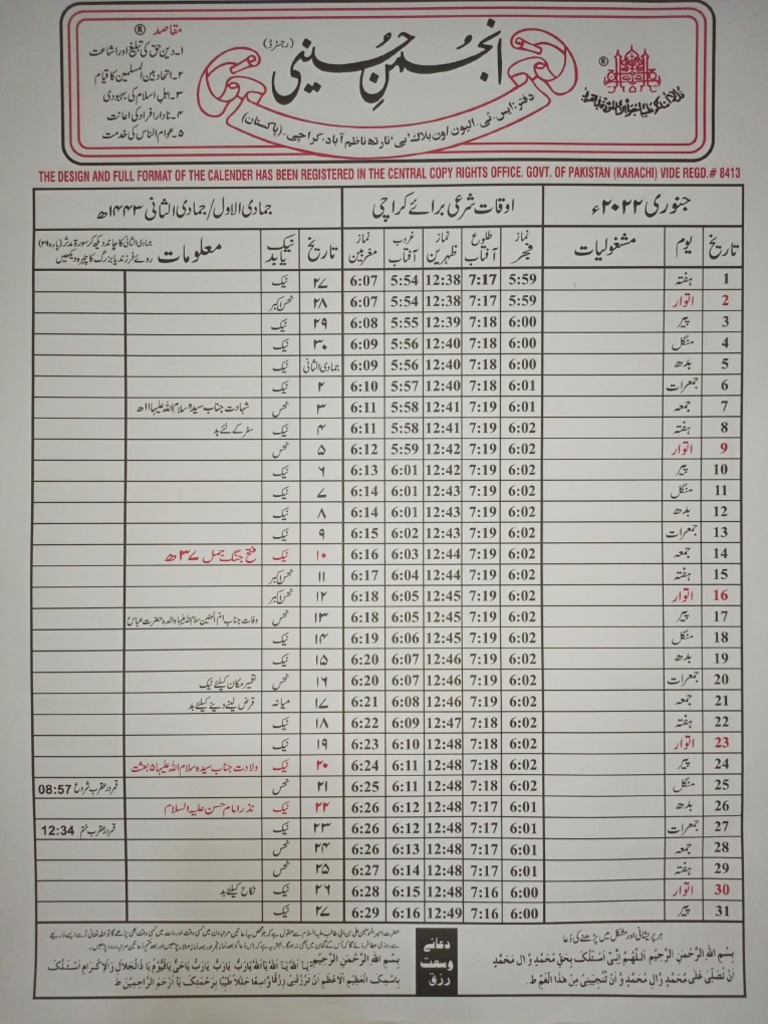 مقاصد ®
۱۔ دین حق کی تبلیغ اور اشاعت
۲۔ اتحاد بین المسلمین کا قیام
۳۔ اہل اسلام کی بہبودی
۴۔ نادار افراد کی اعانت
۵۔ عوام الناس کی خدمت
انجمنِ حُسینی (رجسٹرڈ)
دفتر: ایس۔ٹی۔الیون اون بلاک 'بی' نارتھ ناظم آباد، کراچی۔ (پاکستان)
®
THE DESIGN AND FULL FORMAT OF THE CALENDER HAS BEEN REGISTERED IN THE CENTRAL COPY RIGHTS OFFICE. GOVT. OF PAKISTAN (KARACHI) VIDE REGD.# 8413
جنوری ۲۰۲۲ء اوقات شرعی برائے کراچی جمادی الاول/جمادی الثانی ۱۴۴۳ھ
تاریخ یوم مشغولیات نماز فجر طلوع آفتاب نماز ظہرین غروب آفتاب نماز مغربین تاریخ نیک یا بد معلومات جمادی الثانی کا چاند دیکھ کر سورۃ مدثر (پارہ ۲۹) روئے فرزند یا بزرگ کا چہرہ دیکھیں
1 ہفتہ 5:59 7:17 12:38 5:54 6:07 ۲۷ نیک
2 اتوار 5:59 7:17 12:38 5:54 6:07 ۲۸ نحس اکبر
3 پیر 6:00 7:18 12:39 5:55 6:08 ۲۹ نیک
4 منگل 6:00 7:18 12:40 5:56 6:09 ۳۰ نیک
5 بدھ 6:00 7:18 12:40 5:56 6:09 جمادی الثانی نیک
6 جمعرات 6:01 7:18 12:40 5:57 6:10 ۲ نیک
7 جمعہ 6:01 7:19 12:41 5:58 6:11 ۳ نحس شہادت جناب سیدہ سلام اللہ علیہا ۱۱ھ
8 ہفتہ 6:02 7:19 12:41 5:58 6:11 ۴ نیک سفر کے لئے بد
9 اتوار 6:02 7:19 12:42 5:59 6:12 ۵ نحس
10 پیر 6:02 7:19 12:42 6:01 6:13 ۶ نیک
11 منگل 6:02 7:19 12:43 6:01 6:14 ۷ نیک
12 بدھ 6:02 7:19 12:43 6:01 6:14 ۸ نیک
13 جمعرات 6:02 7:19 12:43 6:02 6:15 ۹ نیک
14 جمعہ 6:02 7:19 12:44 6:03 6:16 ۱۰ نیک فتح جنگ جمل ۳۷ھ
15 ہفتہ 6:02 7:19 12:44 6:04 6:17 ۱۱ نحس اکبر
16 اتوار 6:02 7:19 12:45 6:05 6:18 ۱۲ نحس اکبر
17 پیر 6:02 7:19 12:45 6:05 6:18 ۱۳ نحس وفات جناب ام البنین سلام اللہ علیہا والدہ حضرت عباس
18 منگل 6:02 7:19 12:45 6:06 6:19 ۱۴ نیک
19 بدھ 6:02 7:19 12:46 6:07 6:20 ۱۵ نیک
20 جمعرات 6:02 7:19 12:46 6:07 6:20 ۱۶ نحس تعمیر مکان کیلئے نیک
21 جمعہ 6:02 7:19 12:46 6:08 6:21 ۱۷ میانہ قرض لینے دینے کیلئے بد
22 ہفتہ 6:02 7:18 12:47 6:09 6:22 ۱۸ نیک
23 اتوار 6:02 7:18 12:48 6:10 6:23 ۱۹ نیک
24 پیر 6:02 7:18 12:48 6:11 6:24 ۲۰ نیک ولادت جناب سیدہ سلام اللہ علیہا ۵ بعثت
25 منگل 6:02 7:18 12:48 6:11 6:25 ۲۱ نحس قمر در عقرب شروع 08:57
26 بدھ 6:01 7:17 12:48 6:12 6:26 ۲۲ نیک نذر امام حسن علیہ السلام
27 جمعرات 6:01 7:17 12:48 6:12 6:26 ۲۳ نیک قمر در عقرب ختم 12:34
28 جمعہ 6:01 7:17 12:48 6:13 6:26 ۲۴ نحس
29 ہفتہ 6:01 7:17 12:48 6:14 6:27 ۲۵ نحس
30 اتوار 6:00 7:16 12:48 6:15 6:28 ۲۶ نیک نکاح کیلئے بد
31 پیر 6:00 7:16 12:49 6:16 6:29 ۲۷ نیک
ہر پریشانی اور مشکل میں پڑھنے کی دُعا
بِسْمِ اللهِ الرَّحْمٰنِ الرَّحِيْمِ اَللّٰهُمَّ اِنِّىْ اَسْئَلُكَ بِحَقِّ مُحَمَّدٍ وَّ اٰلِ مُحَمَّدٍ
اَنْ تُصَلِّىَ عَلٰى مُحَمَّدٍ وَّ اٰلِ مُحَمَّدٍ وَ اَنْ تُنْجِيَنِىْ مِنْ هٰذَا الْغَمِّ ط
دعائے وسعت رزق
بِسْمِ اللهِ الرَّحْمٰنِ الرَّحِيْمِ